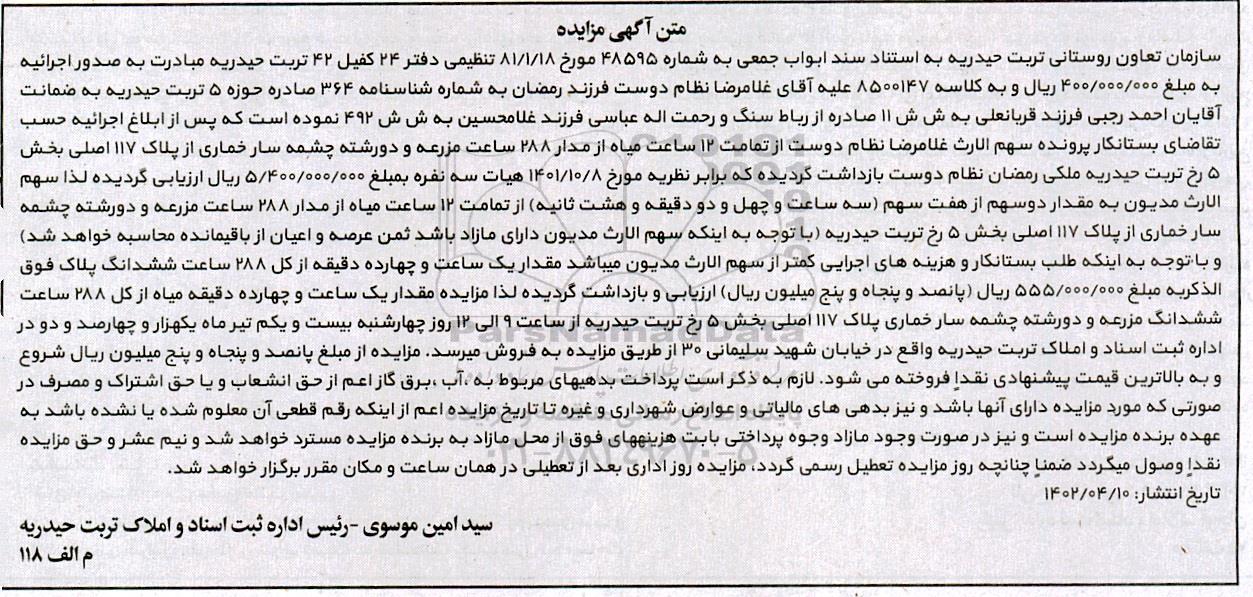 متن آگهی مزایده
سازمان تعاون روستائی تربت حیدریه به استناد سند ابواب جمعی به شماره ۴۸۵۹۵ مورخ ۸۱/۱/۱۸ تنظیمی دفتر ۲۴ کفیل ۴۲ تربت حیدریه مبادرت به صدور اجرائیه
به مبلغ ۴۰۰/۰۰۰/۰۰۰ ریال و به کلاسه ۸۵۰۰۱۴۷ علیه آقای غلامرضا نظام دوست فرزند رمضان به شماره شناسنامه ۳۶۴ صادره حوزه ۵ تربت حیدریه به ضمانت
آقایان احمد رجبی فرزند قربانعلی به ش ش ۱۱ صادره از رباط سنگ و رحمت اله عباسی فرزند غلامحسین به ش ش ۴۹۲ نموده است که پس از ابلاغ اجرائیه حسب
تقاضای بستانکار پرونده سهم الارث غلامرضا نظام دوست از تمامت ۱۲ ساعت میاه از مدار ۲۸۸ ساعت مزرعه و دورشته چشمه سار خماری از پلاک ۱۱۷ اصلی بخش
۵ رخ تربت حیدریه ملکی رمضان نظام دوست بازداشت گردیده که برابر نظریه مورخ ۱۴۰۱/۱۰/۸ هیات سه نفره بمبلغ ۵/۴۰۰/۰۰۰/۰۰۰ ریال ارزیابی گردیده لذا سهم
الارث مدیون به مقدار دوسهم از هفت سهم (سه ساعت و چهل و دو دقیقه و هشت ثانیه) از تمامت ۱۲ ساعت میاه از مدار ۲۸۸ ساعت مزرعه و دورشته چشمه
سار خماری از پلاک ۱۱۷ اصلی بخش ۵ رخ تربت حیدریه (با توجه به اینکه سهم الارث مدیون دارای مازاد باشد ثمن عرصه و اعیان از باقیمانده محاسبه خواهد شد)
و با توجه به اینکه طلب بستانکار و هزینه های اجرایی کمتر از سهم الارث مدیون میباشد مقدار یک ساعت و چهارده دقیقه از کل ۲۸۸ ساعت ششدانگ پلاک فوق
الذکربه مبلغ ۵۵۵/۰۰۰/۰۰۰ ریال (پانصد و پنجاه و پنج میلیون ریال) ارزیابی و بازداشت گردیده لذا مزایده مقدار یک ساعت و چهارده دقیقه میاه از کل ۲۸۸ ساعت
ششدانگ مزرعه و دورشته چشمه سار خماری پلاک ۱۱۷ اصلی بخش ۵ رخ تربت حیدریه از ساعت ۹ الی ۱۲ روز چهارشنبه بیست و یکم تیر ماه یکهزار و چهارصد و دو در
اداره ثبت اسناد و املاک تربت حیدریه واقع در خیابان شهید سلیمانی ۳۰ از طریق مزایده به فروش میرسد. مزایده از مبلغ پانصد و پنجاه و پنج میلیون ریال شروع
و به بالاترین قیمت پیشنهادی نقداً فروخته می شود. لازم به ذکر است پرداخت بدهیهای مربوط به ،آب ،برق گاز اعم از حق انشعاب و یا حق اشتراک و مصرف در
صورتی که مورد مزایده دارای آنها باشد و نیز بدهی های مالیاتی و عوارض شهرداری و غیره تا تاریخ مزایده اعم از اینکه رقم قطعی آن معلوم شده یا نشده باشد به
عهده برنده مزایده است و نیز در صورت وجود مازاد وجوه پرداختی بابت هزینههای فوق از محل مازاد به برنده مزایده مسترد خواهد شد و نیم عشر و حق مزایده
نقداً وصول میگردد ضمناً چنانچه روز مزایده تعطیل رسمی گردد، مزایده روز اداری بعد از تعطیلی در همان ساعت و مکان مقرر برگزار خواهد شد.
تاریخ انتشار: ۱۴۰۲/۰۴/۱۰
سید امین موسوی -رئیس اداره ثبت اسناد و املاک تربت حیدریه
م الف ۱۱۸
ParsNamadData
۰۲۱-۸۸۳۴۹۶۷۰-۵